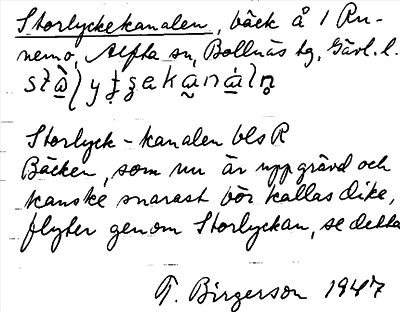 Storlyckekanalen, bäck å 1 Ru-
nemo, Alfta sn, Bollnäs tg, Gävl. l.
Storlyck-kanalen bls R
Bäcken, som nu är uppgrävd och
kanske snarast bör kallas dike,
flyter genom Storlyckan, se detta
T. Birgerson 1947